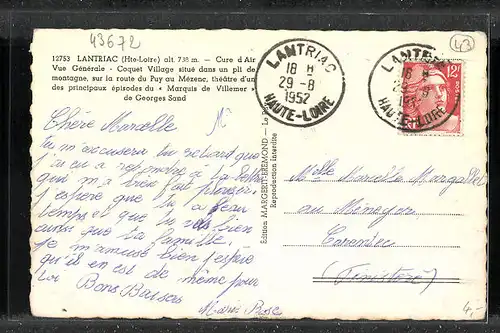 43672
43
12753 LANTRIAC (Hte-Loire) alt. 738 m. — Cure d'Air
Vue Générale - Coquet Village situé dans un pli de
montagne, sur la route du Puy au Mézenc, théâtre d'un
des principaux épisodes du « Marquis de Villemer »
de Georges Sand
LANTRIAC
18 H
29-8
1952
HAUTE-LOIRE
LANTRIAC
18 H
29-8
HAUTE-LOIRE
12F
Chère Marcelle
Tu m'excusera du retard que
j'ai eu a repondre a ta lettre
qui m'a bien fait plaisir
j'espère que tu a beau
temps et que tu vas bien
ainsi que ta famille.
Je m'amuse bien j'espère
qu'il en est de même pour
toi Bons Baisers
Marie Rose
Édition MARGERIT-BREMOND - Le Puy
Reproduction interdite
Mlle Marcelle
au
Carentec
(Finistère)
4,-